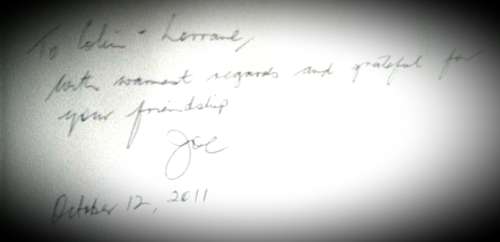 To Colin + Lorrane,
with warmest regards and grateful for
your friendship
Joe
October 12, 2011